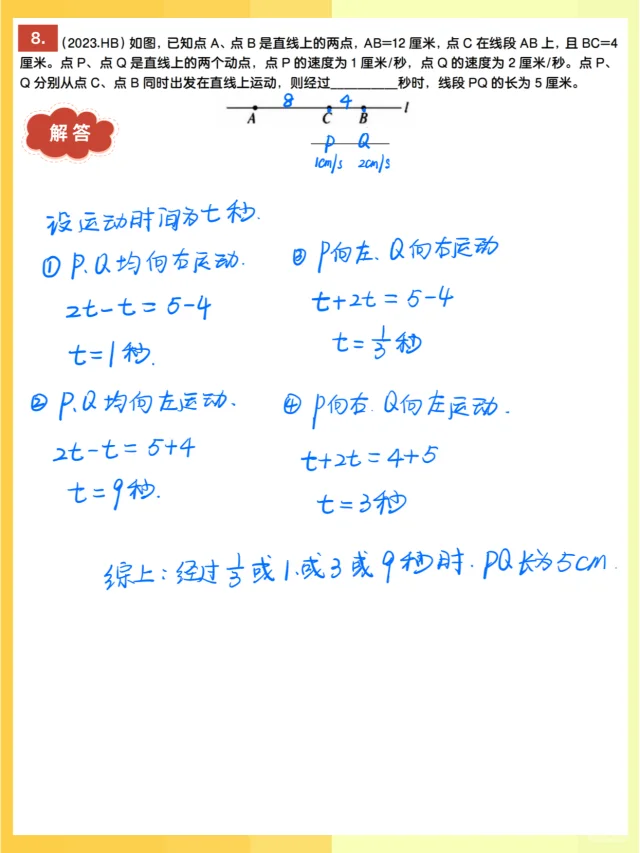 8. (2023.HB) 如图，已知点 A、点 B 是直线上的两点，AB=12 厘米，点 C 在线段 AB 上，且 BC=4
厘米。点 P、点 Q 是直线上的两个动点，点 P 的速度为 1 厘米/秒，点 Q 的速度为 2 厘米/秒。点 P、
Q 分别从点 C、点 B 同时出发在直线上运动，则经过________秒时，线段 PQ 的长为 5 厘米。
8 4
A C B l
解答
P Q
1cm/s 2cm/s
设运动时间为t秒.
① P、Q均向右运动.
2t-t=5-4
t=1秒.
② P、Q均向左运动、
2t-t=5+4
t=9秒.
③ P向左、Q向右运动
t+2t=5-4
t=1/3秒
④ P向右.Q向左运动.
t+2t=4+5
t=3秒
综上：经过1/3或1.或3或9秒时.PQ长为5cm.